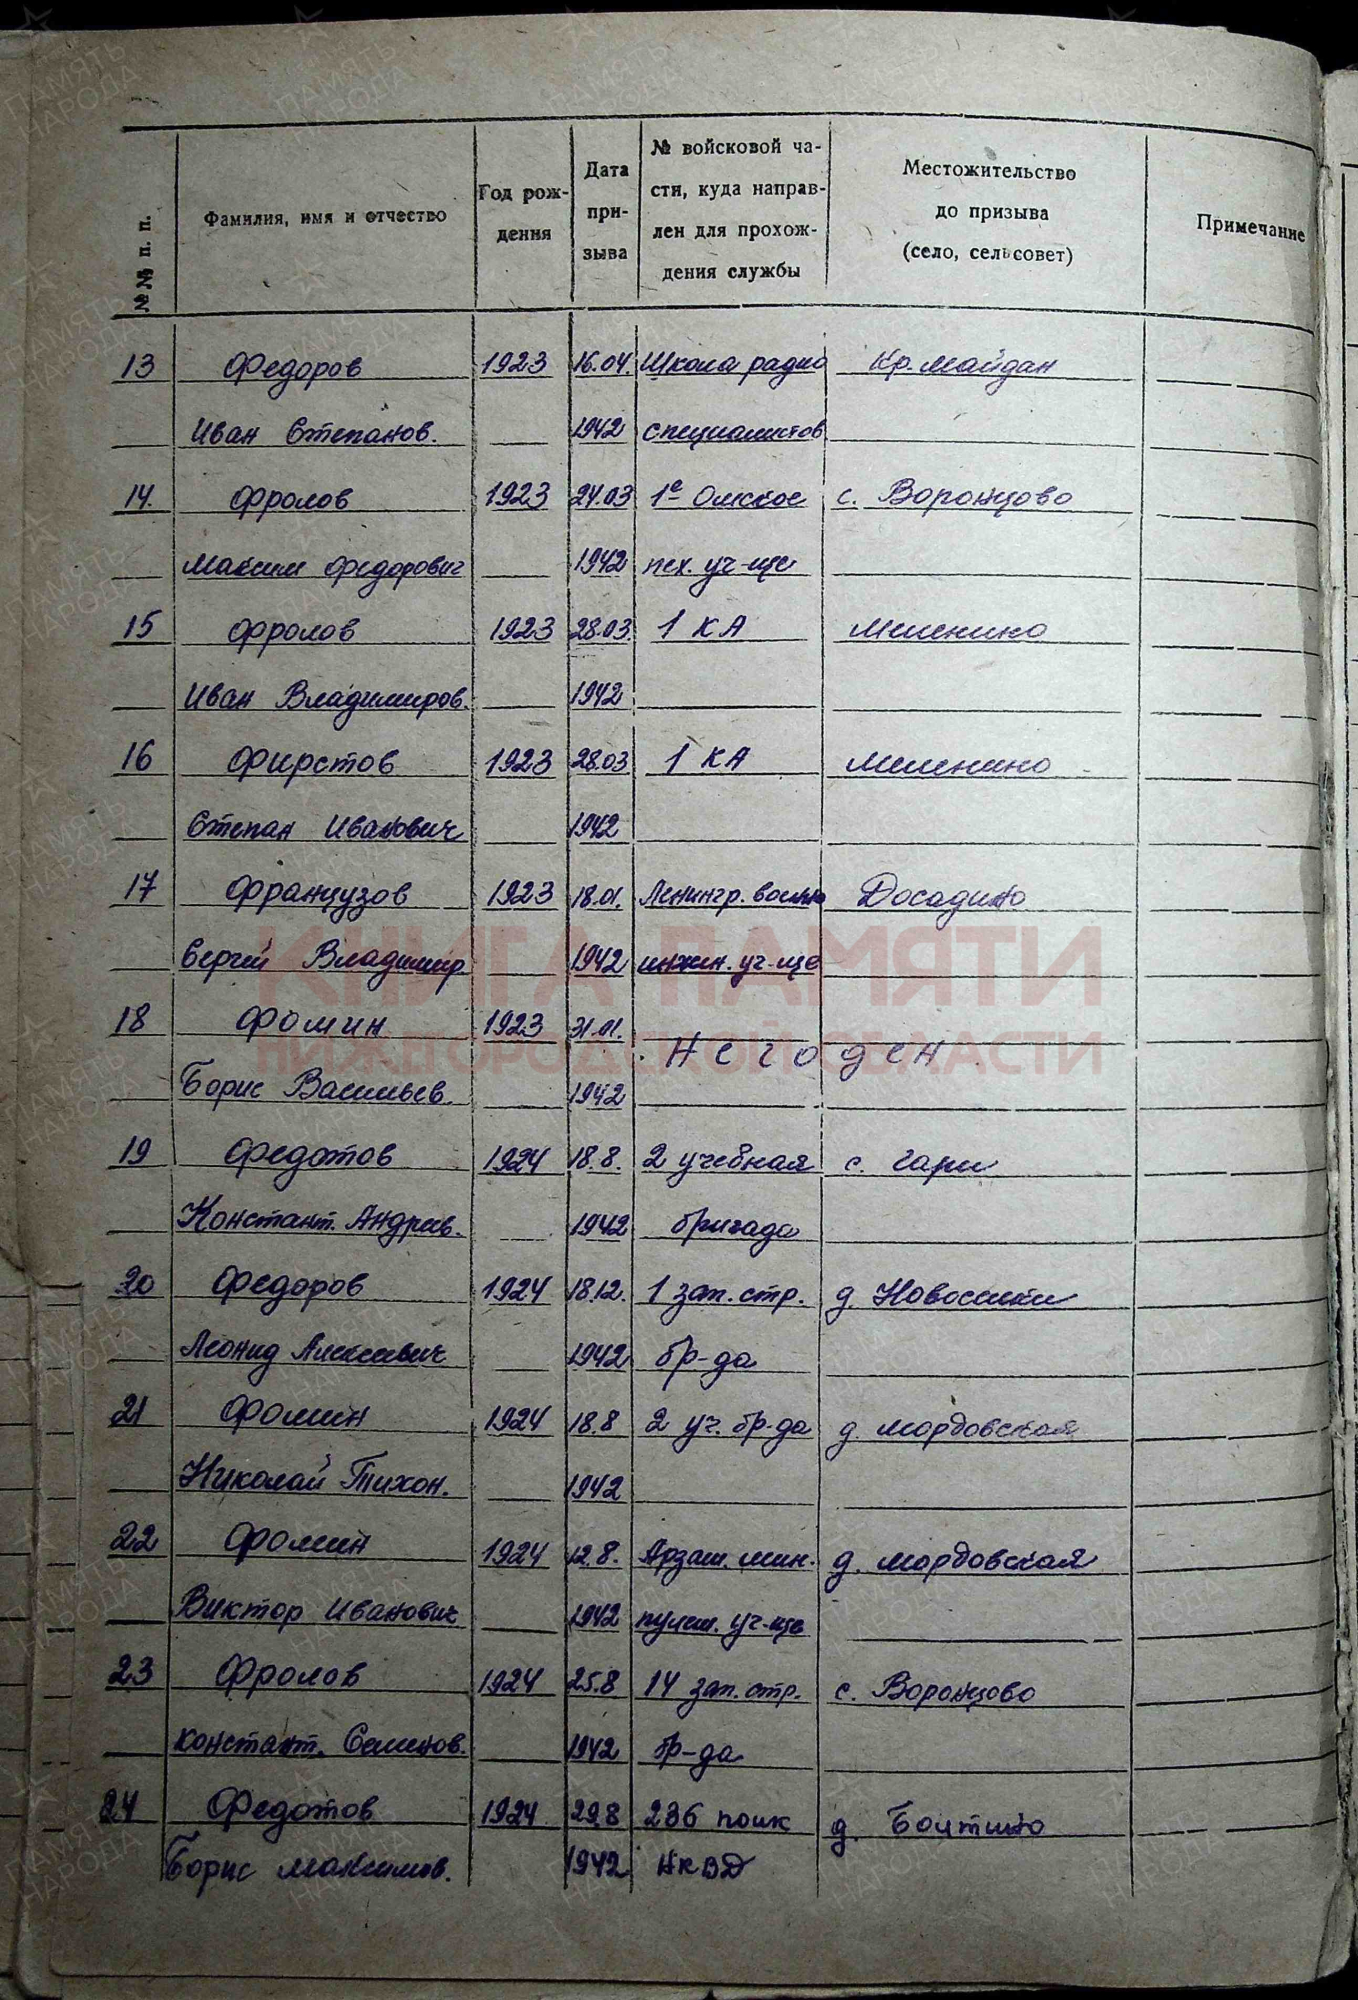 №№ п. п.
Фамилия, имя и отчество
Год рождения
Дата призыва
№ войсковой части, куда направлен для прохождения службы
Местожительство до призыва (село, сельсовет)
Примечание
13 Федоров 1923 16.04. Школа радио Кр. Майдан
Иван Степанов. 1942 специалистов
14. Фролов 1923 24.03 1е Омское с. Воронцово
Максим Федорович 1942 пех. уч-ще
15 Фролов 1923 28.03. 1 КА Меленино
Иван Владимиров. 1942
16 Фирстов 1923 28.03 1 КА Меленино
Степан Иванович 1942
17 Французов 1923 18.01. Ленингр. военно Досадино
Сергей Владимир 1942 инжен. уч-ще
КНИГА ПАМЯТИ
18 Фомин 1923 31.01. Не годен
НИЖЕГОРОДСКОЙ ОБЛАСТИ
Борис Васильев. 1942
19 Федотов 1924 18.8. 2 учебная с. Гари
Констант. Андреев. 1942 бригада
20 Федоров 1924 18.12. 1 зап. стр. д
Леонид Алексеевич 1942 бр-да
21 Фомин 1924 18.8 2 уч. бр-да д. Мордовская
Николай Тихон. 1942
22 Фомин 1924 12.8. Арзам. мин. д. Мордовская
Виктор Иванович 1942 пулем. уч-ще
23 Фролов 1924 25.8 14 зап. стр. с. Воронцово
Констант. Семенов. 1942 бр-да
24 Федотов 1924 29.8 236 полк д. Болтино
Борис Максимов. 1942 НКВД
ПАМЯТЬ НАРОДА